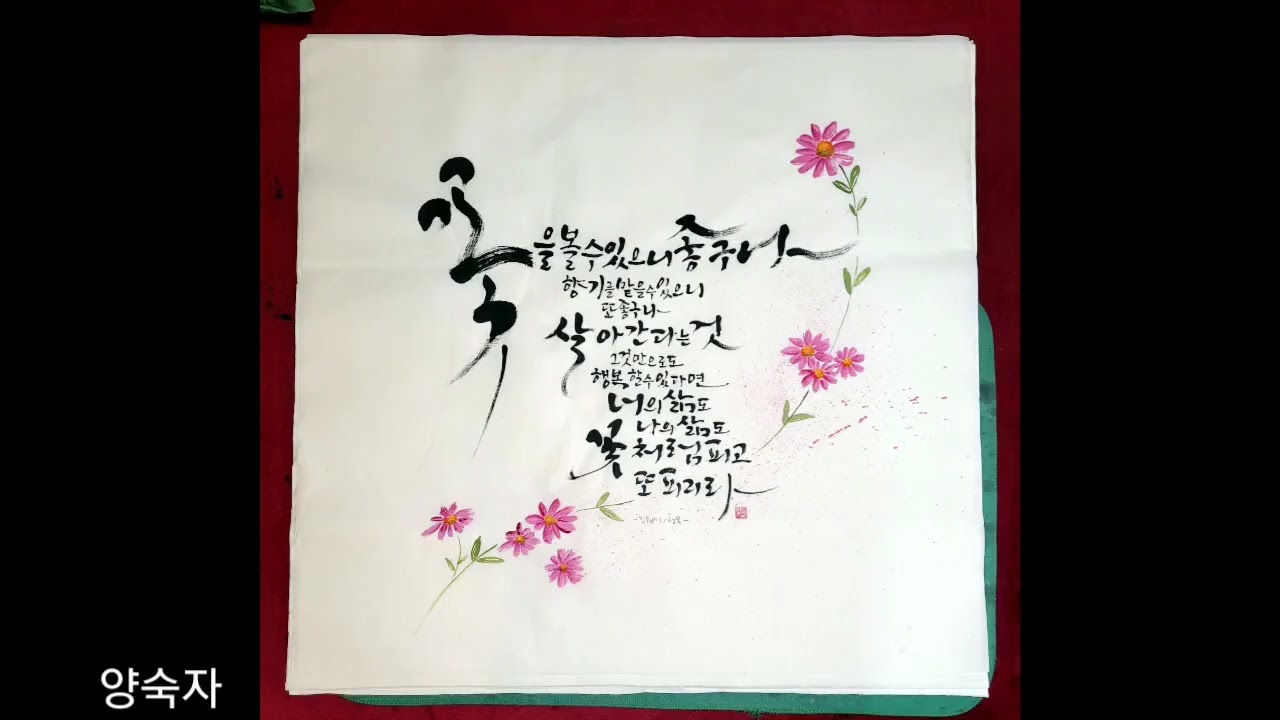 꽃을 볼 수 있으니 좋구나
향기를 맡을 수 있으니
또 좋구나
살아간다는 것
그것만으로도
행복할 수 있다면
너의 삶도
나의 삶도
꽃처럼 피고
또 피리라
양숙자